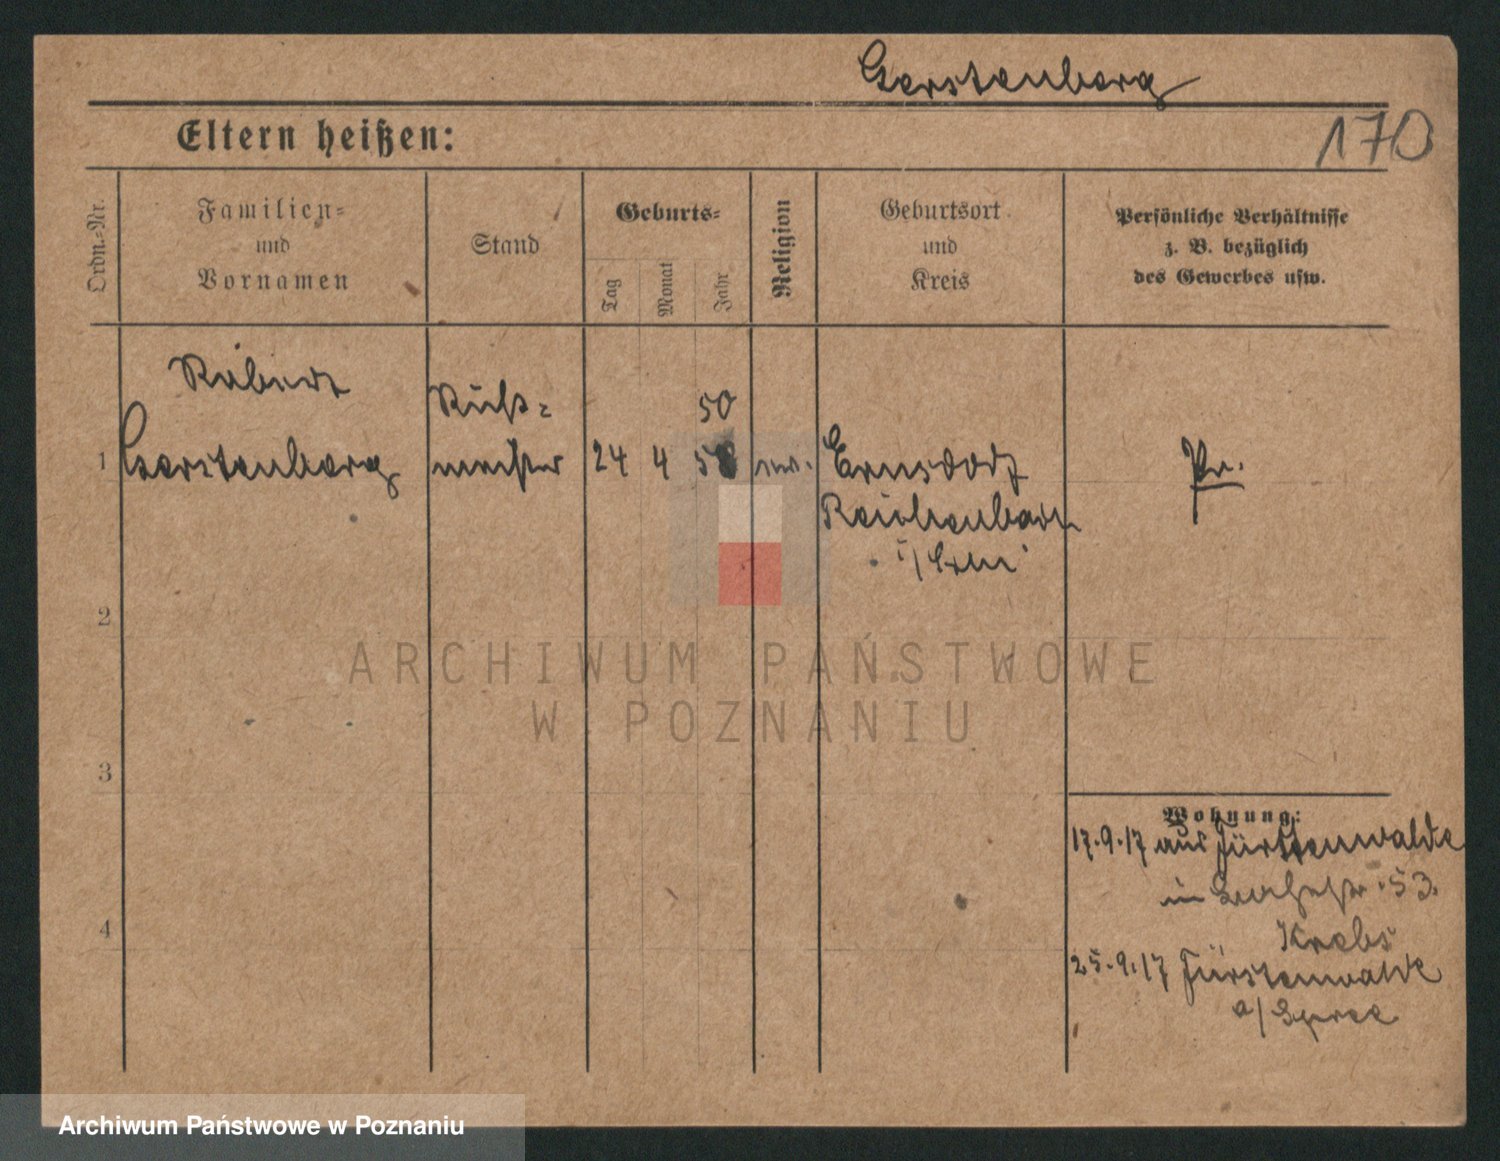 Gerstenberg
170
Eltern heißen:
Ordn.-Nr.
Familien-
und
Vornamen
Stand
Geburts-
Tag
Monat
Jahr
Religion
Geburtsort
und
Kreis
Persönliche Verhältnisse
z. B. bezüglich
des Gewerbes usw.
Robert
50
1 Gerstenberg
24 4 58
Ernsdorf
Pr.
Reichenbach
2
ARCHIWUM PAŃSTWOWE
W POZNANIU
3
Wohnung:
17.9.17 aus Fürstenwalde
53.
Krebs
4
25.9.17 Fürstenwalde
a/Spree
Archiwum Państwowe w Poznaniu